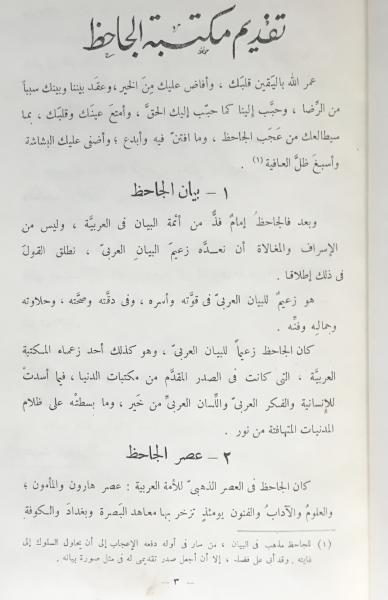 تقديم مكتبة الجاحظ
عمر الله باليَقين قلبَك ، وأفاض عليك مِنَ الخير، وعقَد بيننا وبينك سبباً
من الرِّضا ، وحبَّب إلينا كما حبّب إليك الحقَّ ، وأمتعَ عينَك وقلبَك ، بما
سيطالعك من عَجَب الجاحظ ، وما افتنّ فيه وأبدع ؛ وأضفى عليك البشاشة
وأسبغَ ظلَّ العافية (١) .
١ – بيان الجاحظ
وبعد فالجاحظُ إمامٌ فذٌّ من أئمّة البيان فى العربيَّة ، وليس من
الإسراف والمغالاة أن نعـــدَّه زعيمَ البيانِ العربىّ ، نطلق القولَ
فى ذلك إطلاقا .
هو زعيمٌ للبيان العربىّ فى قوّته وأسره ، وفى دقّته وصحّته ، وحلاوته
وجمالِه وفنِّه .
كان الجاحظ زعيماً للبيان العربىّ ، وهو كذلك أحد زعماء المكتبة
العربيَّة ، التى كانت فى الصدر المقدَّم من مكتبات الدنيا ، فيما أسدتْ
للإنسانية والفكر العربىّ واللِّسان العربىِّ من خَير ، وما بسطتْه على ظلام
المدنيات المتهافتة من نور .
٢ – عصر الجاحظ
كان الجاحظ فى العصر الذهبىّ للأمة العربية : عصر هارون والمأمون ؛
والعلومُ والآدابُ والفنون يومئذٍ تزخر بها معاهد البَصرة وبغدادَ والكوفة
(١) للجاحظ مذهب فى البيان ، من سار فى أوله دفعه الإعجاب إلى أن يحاول السلوك إلى
غايته . وقد أبى على فضله ، إلا أن أجعل صدر تقديمى له فى مثل صورة بيانه .
— ٣ —